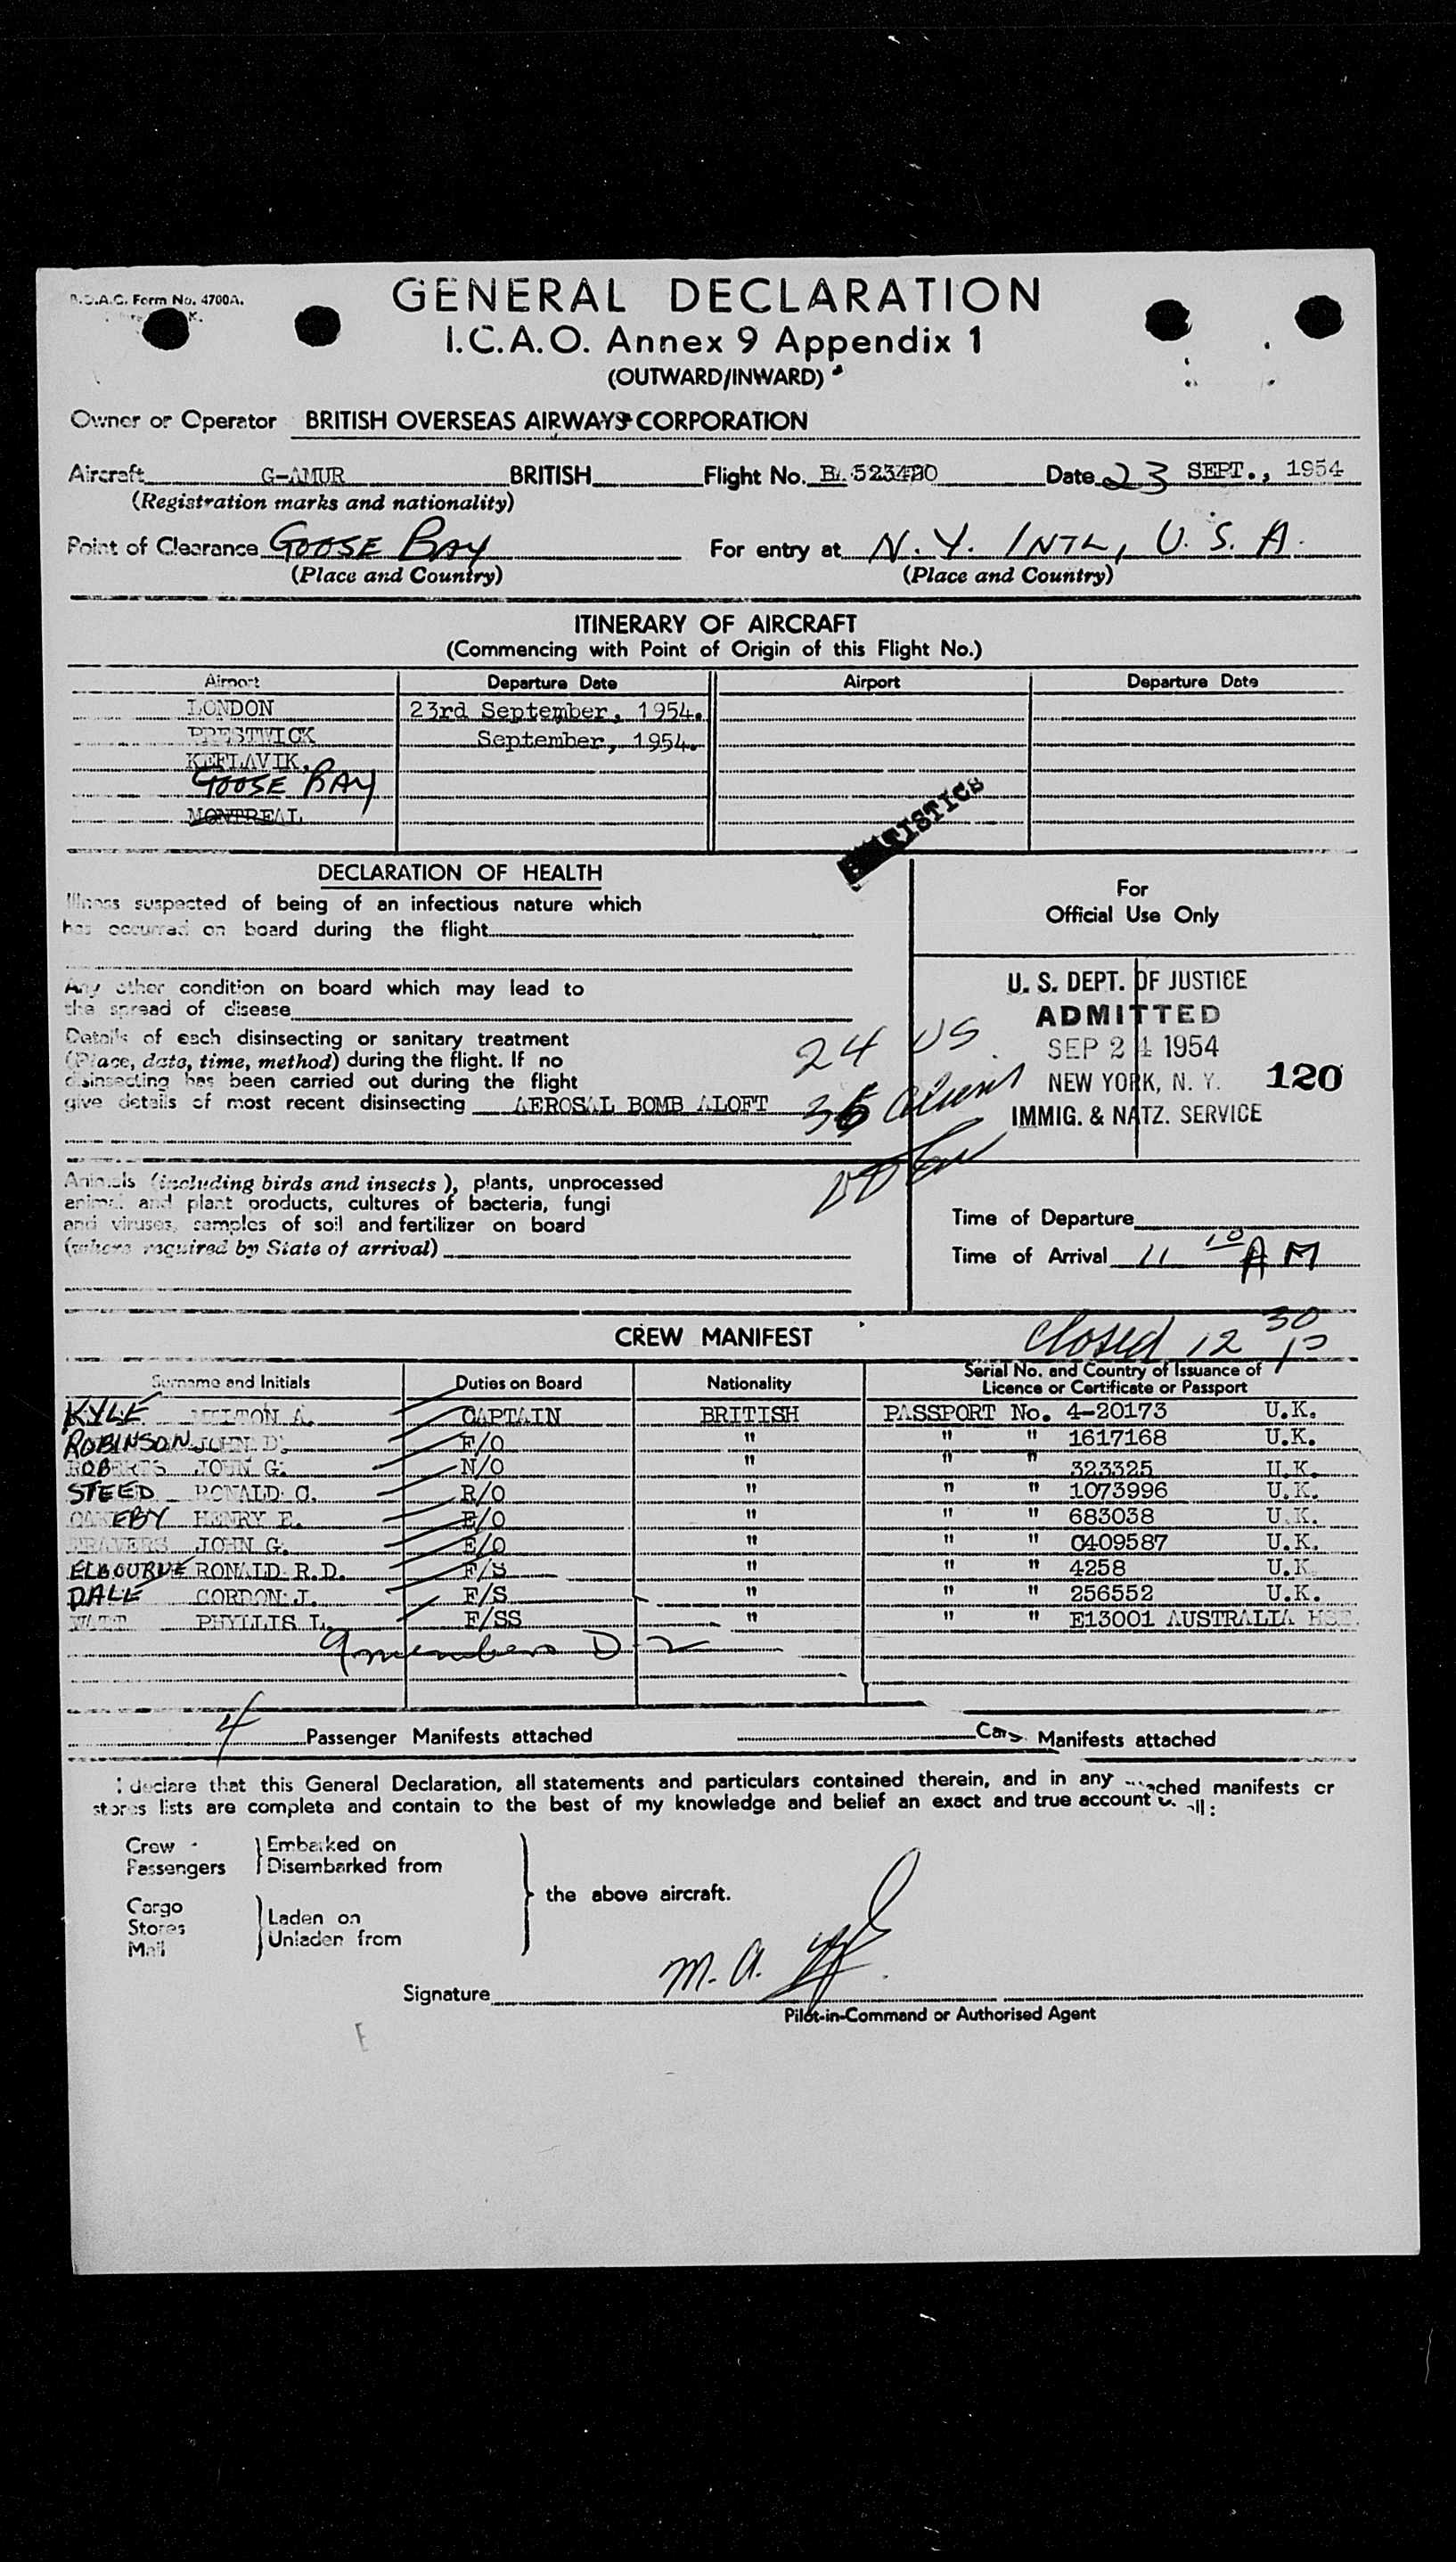 B.O.A.C. Form No. 4700A.
GENERAL DECLARATION
I.C.A.O. Annex 9 Appendix 1
(OUTWARD/INWARD)
Owner or Operator BRITISH OVERSEAS AIRWAYS CORPORATION
Aircraft G-AMUR BRITISH Flight No. Date 23 SEPT., 1954
(Registration marks and nationality)
Point of Clearance GOOSE BAY For entry at N.Y. INTL, U.S.A.
(Place and Country) (Place and Country)
ITINERARY OF AIRCRAFT
(Commencing with Point of Origin of this Flight No.)
Airport Departure Date Airport Departure Date
LONDON 23rd September, 1954.
PRESTWICK September, 1954.
KEFLAVIK.
GOOSE BAY
MONTREAL
DECLARATION OF HEALTH
Illness suspected of being of an infectious nature which
has occurred on board during the flight
Any other condition on board which may lead to
the spread of disease
Details of each disinsecting or sanitary treatment
(Place, date, time, method) during the flight. If no
disinsecting has been carried out during the flight
give details of most recent disinsecting AEROSAL BOMB ALOFT
24 US
Aliens
Animals (including birds and insects), plants, unprocessed
animal and plant products, cultures of bacteria, fungi
and viruses, samples of soil and fertilizer on board
(where required by State of arrival)
For
Official Use Only
U. S. DEPT. OF JUSTICE
ADMITTED
SEP 24 1954
NEW YORK, N. Y. 120
IMMIG. & NATZ. SERVICE
Time of Departure
Time of Arrival 11 10 AM
CREW MANIFEST
Closed 12 30
Surname and Initials Duties on Board Nationality Serial No. and Country of Issuance of
Licence or Certificate or Passport
KYLE MILTON A. CAPTAIN BRITISH PASSPORT No. 4-20173 U.K.
ROBINSON JOHN D. F/O " " " 1617168 U.K.
ROBERTS JOHN G. N/O " " " 323325 U.K.
STEED RONALD C. R/O " " " 1073996 U.K.
EBY HENRY E. E/O " " " 683038 U.K.
TRAVERS JOHN G. E/O " " " 0409587 U.K.
ELBOURNE RONALD R.D. F/S " " " 4258 U.K.
DALE GORDON J. F/S " " " 256552 U.K.
WATT PHYLLIS L. F/SS " " " E13001 AUSTRALIA HSE.
9 members D-2
4 Passenger Manifests attached Manifests attached
I declare that this General Declaration, all statements and particulars contained therein, and in any attached manifests or
stores lists are complete and contain to the best of my knowledge and belief an exact and true account of all:
Crew
Passengers
Embarked on
Disembarked from
Cargo
Stores
Mail
Laden on
Unladen from
the above aircraft.
Signature M. A.
Pilot-in-Command or Authorised Agent